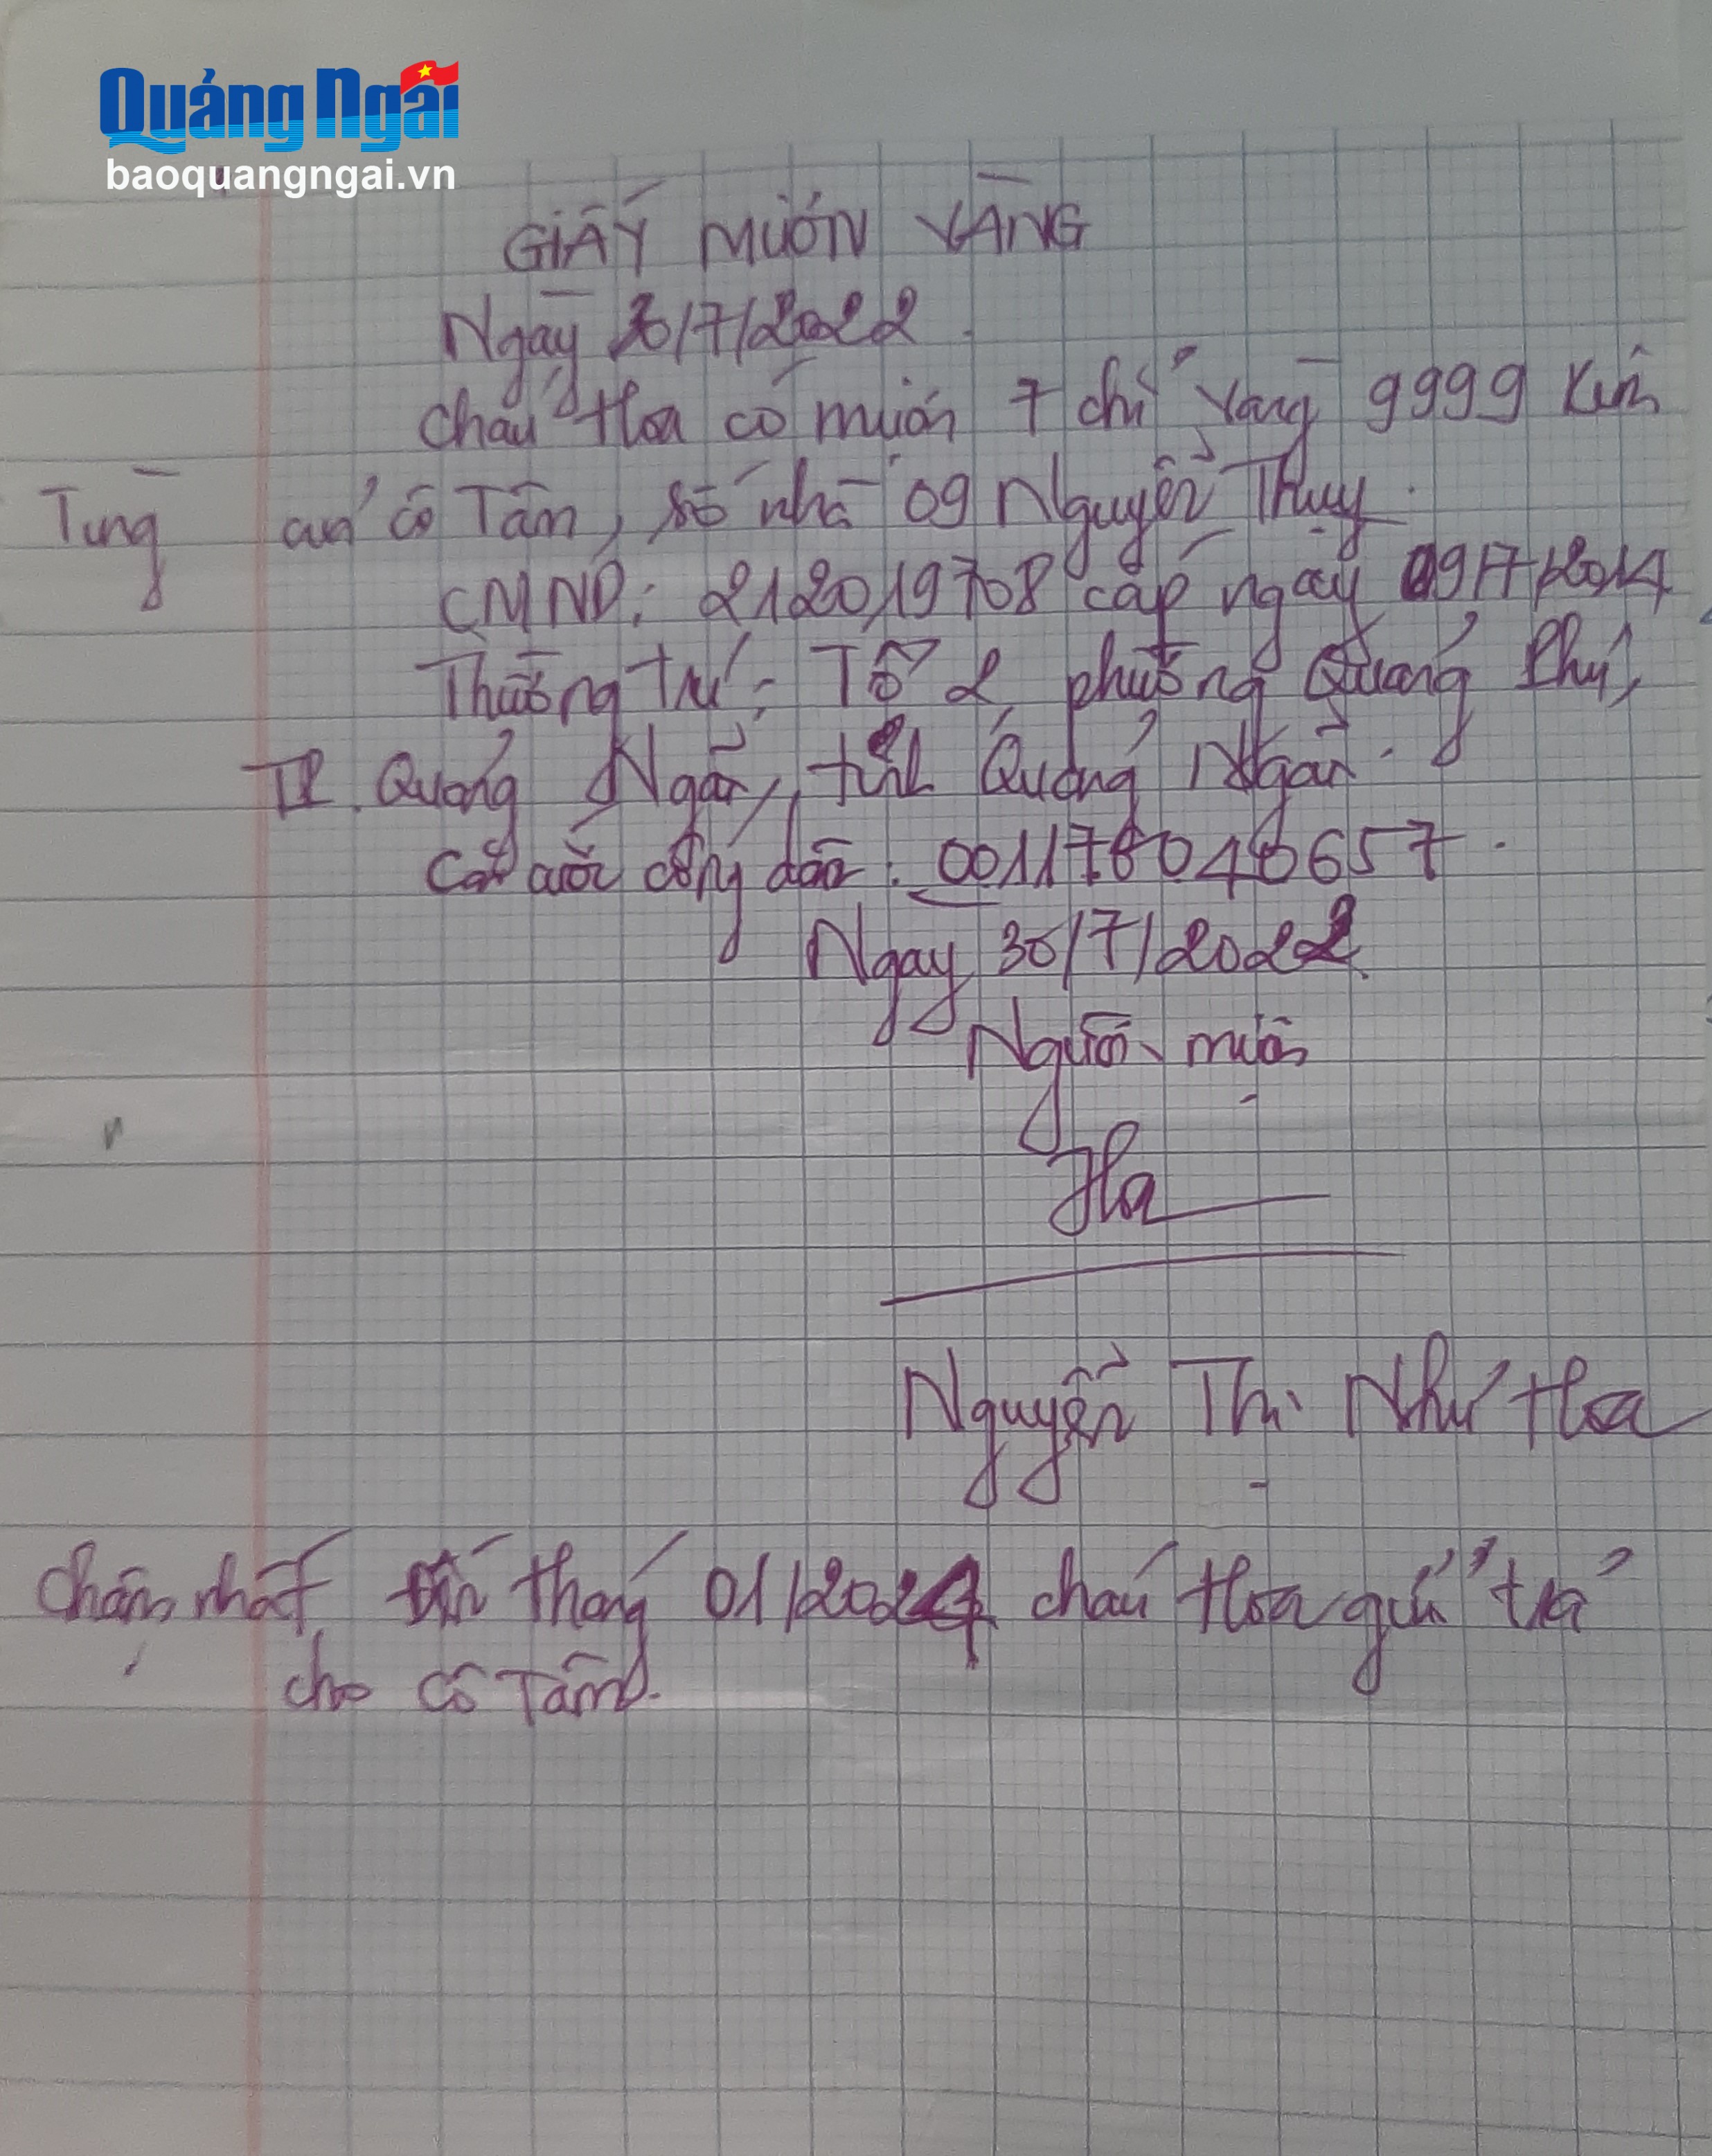 Quảng Ngãi
baoquangngai.vn
GIẤY MƯỚN VÀNG
Ngày 30/7/2022.
Cháu Hoa có mướn 7 chỉ vàng 9999 Kim
Tùng của cô Tâm, số nhà 09 Nguyễn Thụy.
CMND: 212019708 cấp ngày 09/7/2014
Thường trú: Tổ 2, phường Quảng Phú,
TP. Quảng Ngãi, tỉnh Quảng Ngãi.
Căn cước công dân: 001178048657.
Ngày 30/7/2022
Người mượn
Hoa
Nguyễn Thị Như Hoa
Chậm nhất đến tháng 01/2024 cháu Hoa gửi trả
cho cô Tâm.